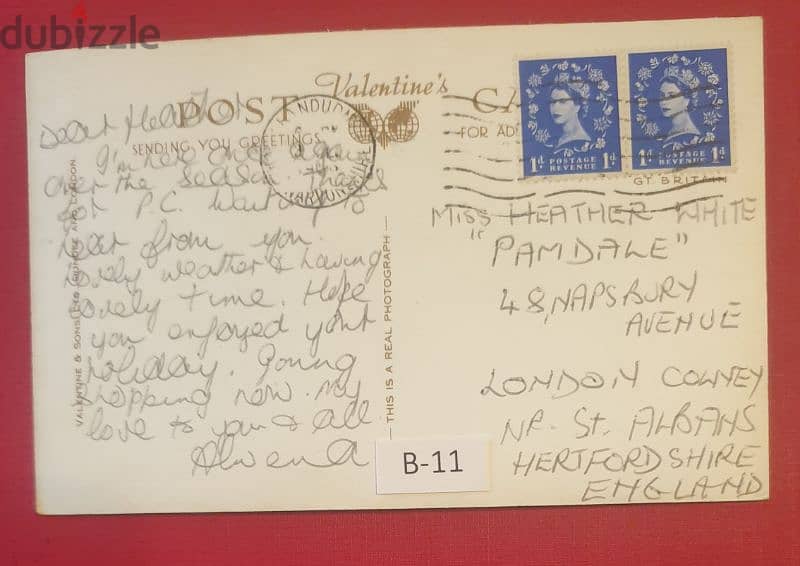 dubizzle
Valentine's
POST
SENDING YOU GREETINGS
FOR AD
1d POSTAGE REVENUE 1d
1d POSTAGE REVENUE 1d
GT BRITAIN
Dear Heather
I'm here once again
over the season. Thanks
for P.C. Waiting to
hear from you.
Lovely weather & having
lovely time. Hope
you enjoyed your
holiday. Going
shopping now. My
love to you & all
Alwena
VALENTINE & SONS LTD. DUNDEE AND LONDON
THIS IS A REAL PHOTOGRAPH
MISS HEATHER WHITE
"PAMDALE"
48, NAPSBURY
AVENUE
LONDON COLNEY
NR. St. ALBANS
HERTFORDSHIRE
ENGLAND
B-11